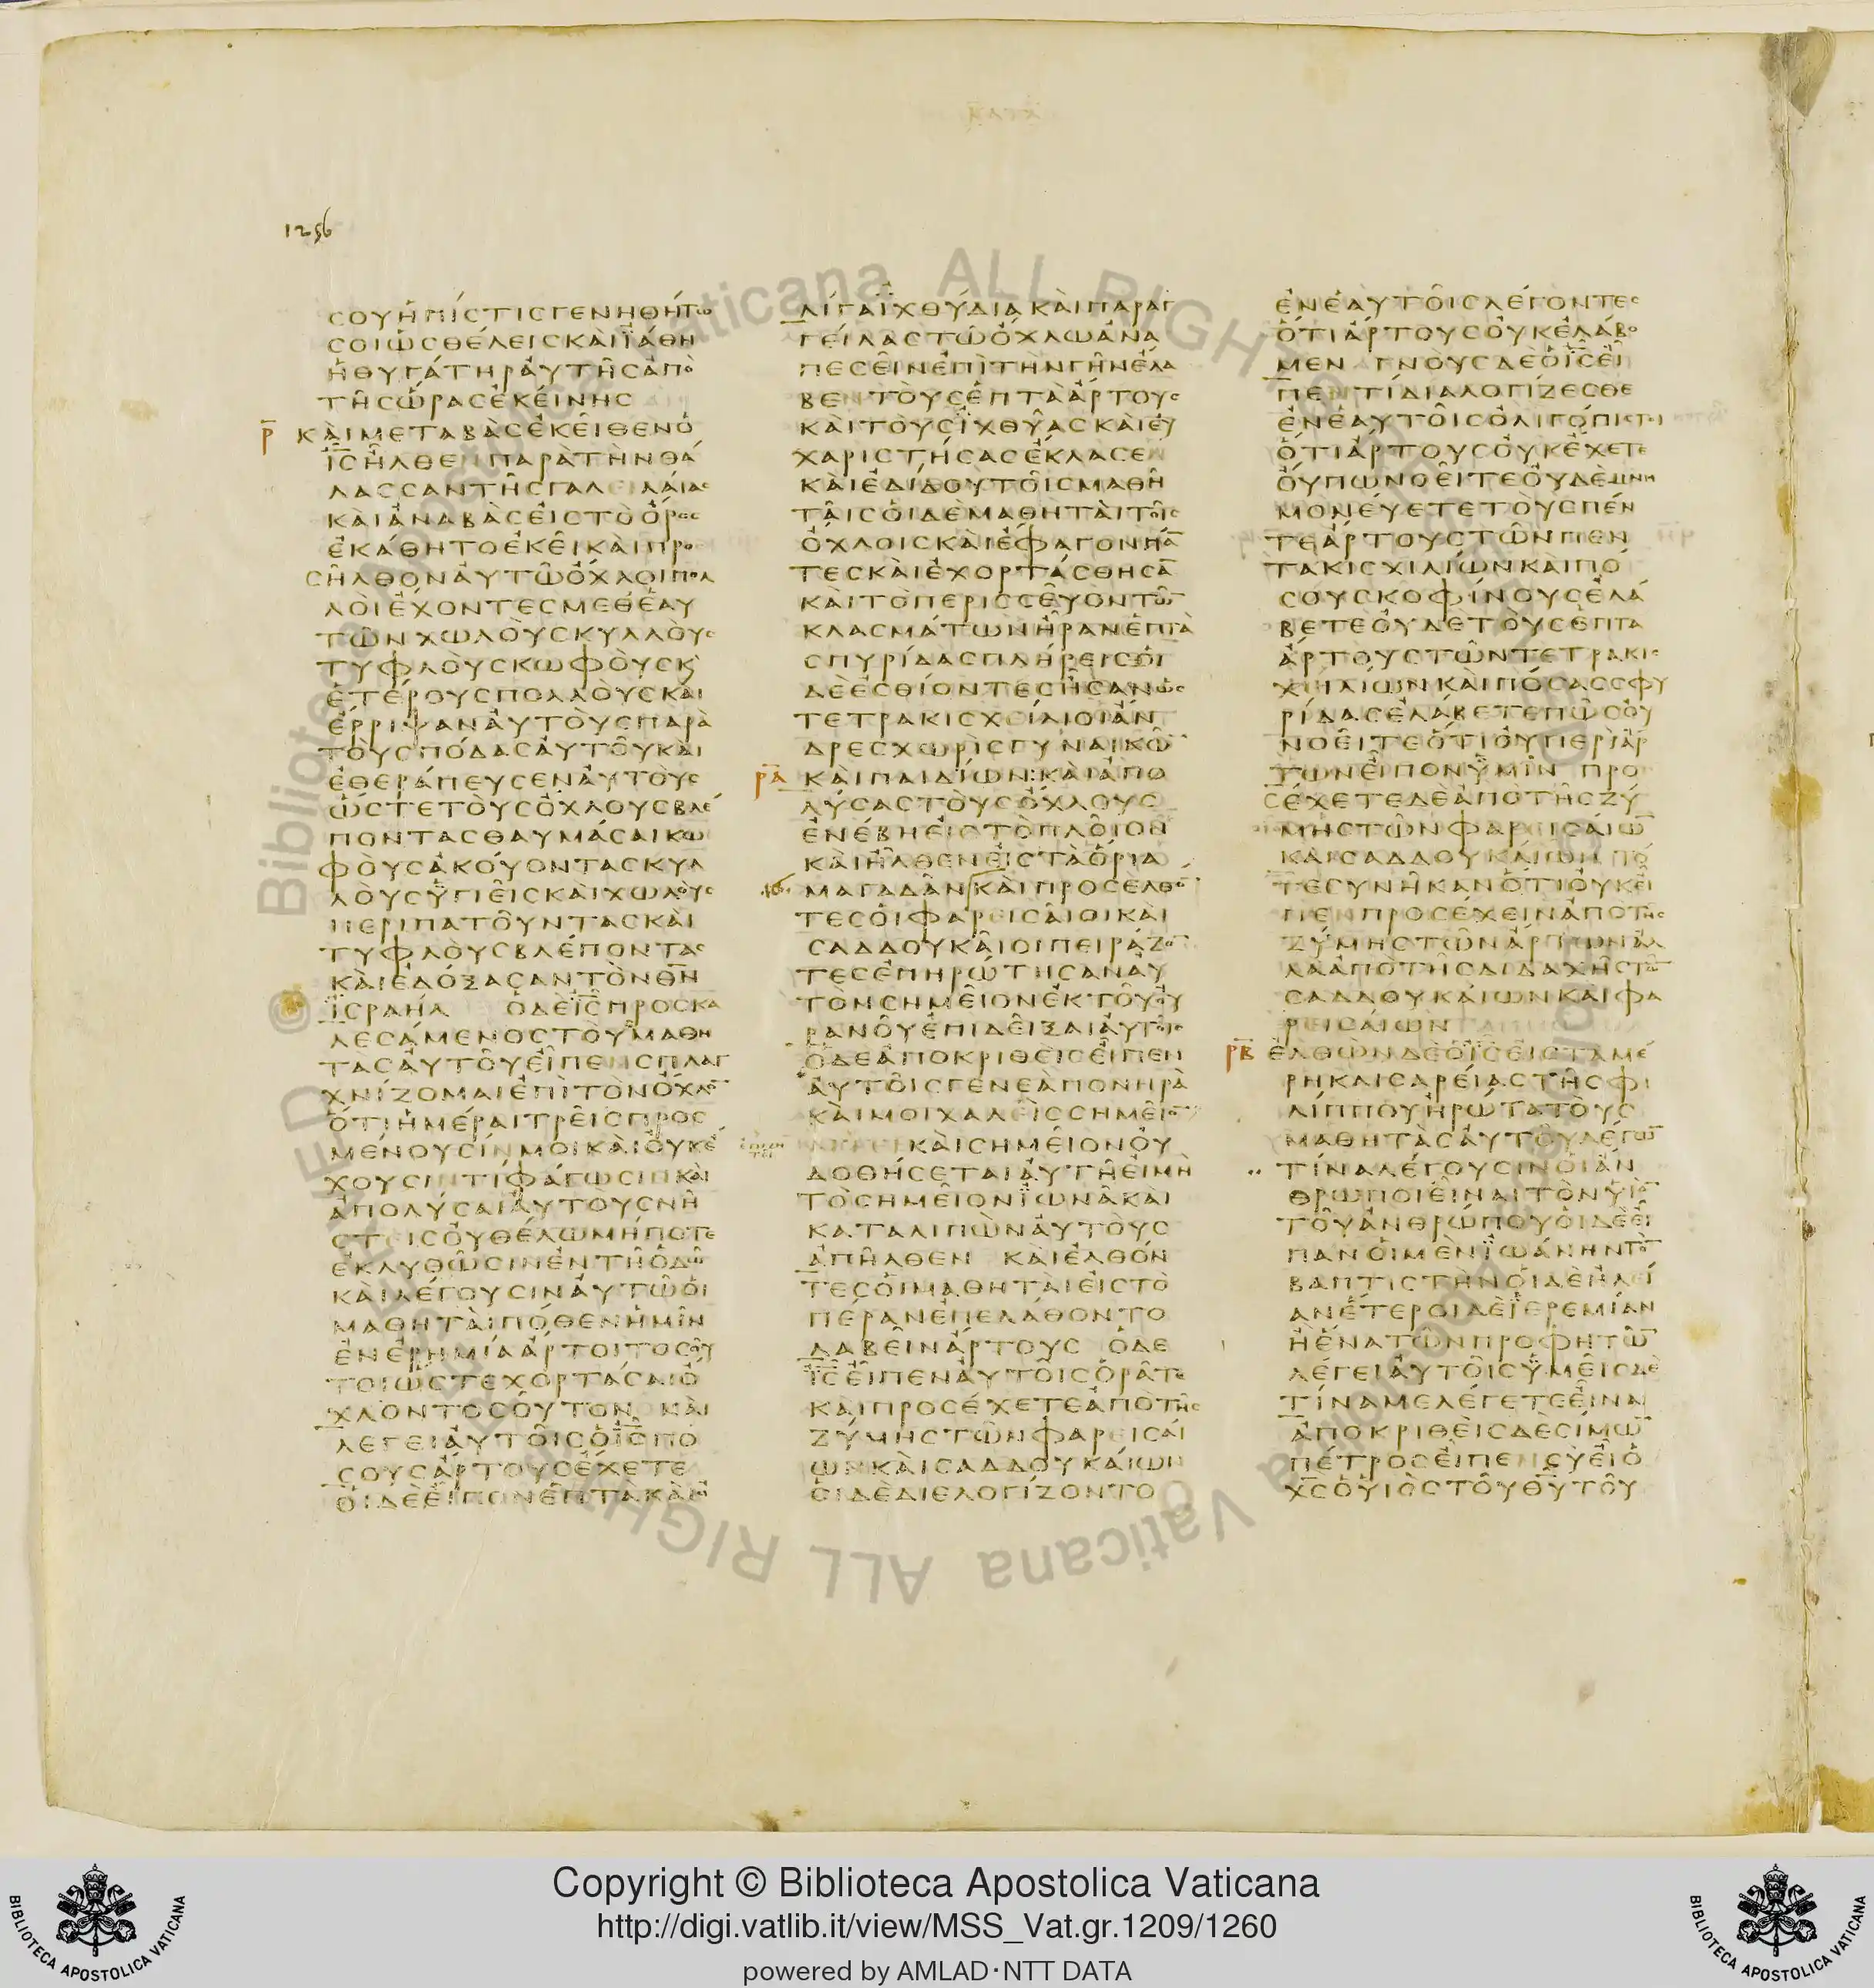 1256
ϲουηπιϲτιϲγενηθητω
ϲοιωϲθελειϲκαιϊαθη
ηθυγατηραυτηϲαπο
τηϲωραϲεκεινηϲ
ρ̅ καιμεταβαϲεκειθενο
ι̅ϲ̅ηλθενπαρατηνθα
λαϲϲαντηϲγαλειλαιαϲ
καιαναβαϲειϲτοοροϲ
εκαθητοεκεικαιπρο
ϲηλθοναυτωοχλοιπολ
λοιεχοντεϲμεθεαυ
τωνχωλουϲκυλλουϲ
τυφλουϲκωφουϲκ̀
ετερουϲπολλουϲκαι
ερριψαναυτουϲπαρα
τουϲποδαϲαυτουκαι
εθεραπευϲεναυτουϲ
ωϲτετουϲοχλουϲβλε
πονταϲθαυμαϲαικω
φουϲακουονταϲκυλ
λουϲϋγιειϲκαιχωλουϲ
περιπατουνταϲκαι
τυφλουϲβλεπονταϲ
καιεδοξαϲαντονθ̅ν̅
ϊϲραηλ οδει̅ϲ̅προϲκα
λεϲαμενοϲτουϲμαθη
ταϲαυτουειπενϲπλαγ
χνιζομαιεπιτονοχλο̅
οτιημεραιτρειϲπροϲ
μενουϲινμοικαιουκε
χουϲιντιφαγωϲινκαι
απολυϲαιαυτουϲνη
ϲτειϲουθελωμηποτε
εκλυθωϲινεντηοδω
καιλεγουϲιναυτωοι
μαθηταιποθενημιν
ενερημιααρτοιτοϲου
τοιωϲτεχορταϲαιο
χλοντοϲουτον και
λεγειαυτοιϲοι̅ϲ̅πο
ϲουϲαρτουϲεχετε
οιδεειπονεπτακαιο
λιγαϊχθυδιακαιπαραγ
γειλαϲτωοχλωανα
πεϲεινεπιτηνγηνελα
βεντουϲεπτααρτουϲ
καιτουϲϊχθυαϲκαιευ
χαριϲτηϲαϲεκλαϲεν
καιεδιδουτοιϲμαθη
ταιϲοιδεμαθηταιτοιϲ
οχλοιϲκαιεφαγονπα̅
τεϲκαιεχορταϲθηϲα̅
καιτοπεριϲϲευοντω̅
κλαϲματωνηρανεπτα
ϲπυριδαϲπληρειϲοι
δεεϲθιοντεϲηϲανωϲ
τετρακιϲχειλιοιαν
δρεϲχωριϲγυναικω̅
ρ̅α̅ καιπαιδιων:καιαπο
λυϲαϲτουϲοχλουϲ
ενεβηειϲτοπλοιον
καιηλθενειϲταορια
μαγαδανκαιπροϲελθο̅
τεϲοιφαρειϲαιοικαι
ϲαδδουκαιοιπειραζο̅
τεϲεπηρωτηϲαναυ
τονϲημειονεκτουου
ρανουεπιδειξαιαυτοιϲ
οδεαποκριθειϲειπεν
αυτοιϲγενεαπονηρα
καιμοιχαλειϲϲημειο̅
καιϲημειονου
δοθηϲεταιαυτηειμη
τοϲημειονϊωνακαι
καταλιπωναυτουϲ
απηλθεν καιελθον
τεϲοιμαθηταιειϲτο
περανεπελαθοντο
λαβειναρτουϲ οδε
ι̅ϲ̅ειπεναυτοιϲορατε
καιπροϲεχετεαποτηϲ
ζυμηϲτωνφαρειϲαι
ωνκαιϲαδδουκαιων
οιδεδιελογιζοντο
ενεαυτοιϲλεγοντεϲ
οτιαρτουϲουκελαβο
μεν γνουϲδεοι̅ϲ̅ει
πεντιδιαλογιζεϲθε
ενεαυτοιϲολιγοπιϲτοι
οτιαρτουϲουκεχετε
ουπωνοειτεουδεμνη
μονευετετουϲπεν
τεαρτουϲτωνπεν
τακιϲχιλιωνκαιπο
ϲουϲκοφινουϲελα
βετεουδετουϲεπτα
αρτουϲτωντετρακιϲ
χειλιωνκαιποϲαϲϲφυ
ριδαϲελαβετεπωϲου
νοειτεοτιουπεριαρ
τωνειπονϋμιν προ
ϲεχετεδεαποτηϲζυ
μηϲτωνφαρειϲαιω̅
καιϲαδδουκαιων το
τεϲυνηκανοτιουκει
πενπροϲεχειναποτηϲ
ζυμηϲτωναρτωναλ
λααποτηϲδιδαχηϲτω̅
ϲαδδουκαιωνκαιφα
ρειϲαιων
ρ̅β̅ ελθωνδεοι̅ϲ̅ειϲταμε
ρηκαιϲαρειαϲτηϲφι
λιππουηρωτατουϲ
μαθηταϲαυτουλεγω̅
τιναλεγουϲινοιαν
θρωποιειναιτονυιο̅
τουανθρωπουοιδεει
πανοιμενϊωανηντο̅
βαπτιϲτηνοιδεηλει
ανετεροιδεϊερεμιαν
ηενατωνπροφητω̅
λεγειαυτοιϲϋμειϲδε
τιναμελεγετεειναι
αποκριθειϲδεϲιμω̅
πετροϲειπενϲυειο
χ̅ϲ̅ουιοϲτουθ̅υ̅του
Copyright © Biblioteca Apostolica Vaticana
http://digi.vatlib.it/view/MSS_Vat.gr.1209/1260
powered by AMLAD·NTT DATA
BIBLIOTECA APOSTOLICA VATICANA
BIBLIOTECA APOSTOLICA VATICANA